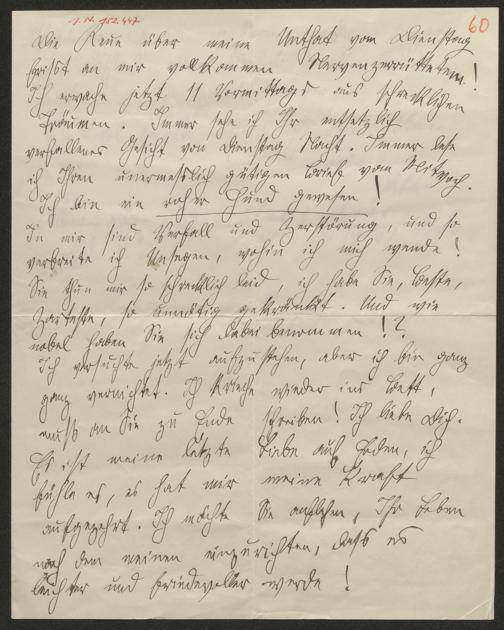 I. N. 152.447
60
Die Reue über meine Unthat vom Dienstag
frisst an mir vollkommen Nervenzerrütteten!
Ich erwache jetzt 11 Vormittags aus schrecklichen
Träumen. Immer sehe ich Ihr entsetzlich
verfallenes Gesicht von Dienstag Nacht. Immer lese
ich Ihren unermesslich gütigen Brief vom Mittwoch.
Ich bin ein roher Hund gewesen!
In mir sind Verfall und Zerstörung, und so
verbreite ich Unsegen, wohin ich mich wende!
Sie thun mir so schrecklich leid, ich habe Sie, Beste,
Zarteste, so unnötig gekränkt. Und wie
nobel haben Sie sich dabei benommen!?
Ich versuchte jetzt aufzustehen, aber ich bin ganz
ganz vernichtet. Ich krieche wieder ins Bett,
muss an Sie zu Ende schreiben! Ich liebe Dich.
Es ist meine letzte Liebe auf Erden, ich
fühle es, es hat mir meine Kraft
aufgezehrt. Ich möchte Sie anflehen, Ihr Leben
nach dem meinen einzurichten, dass es
leichter und friedevoller werde!